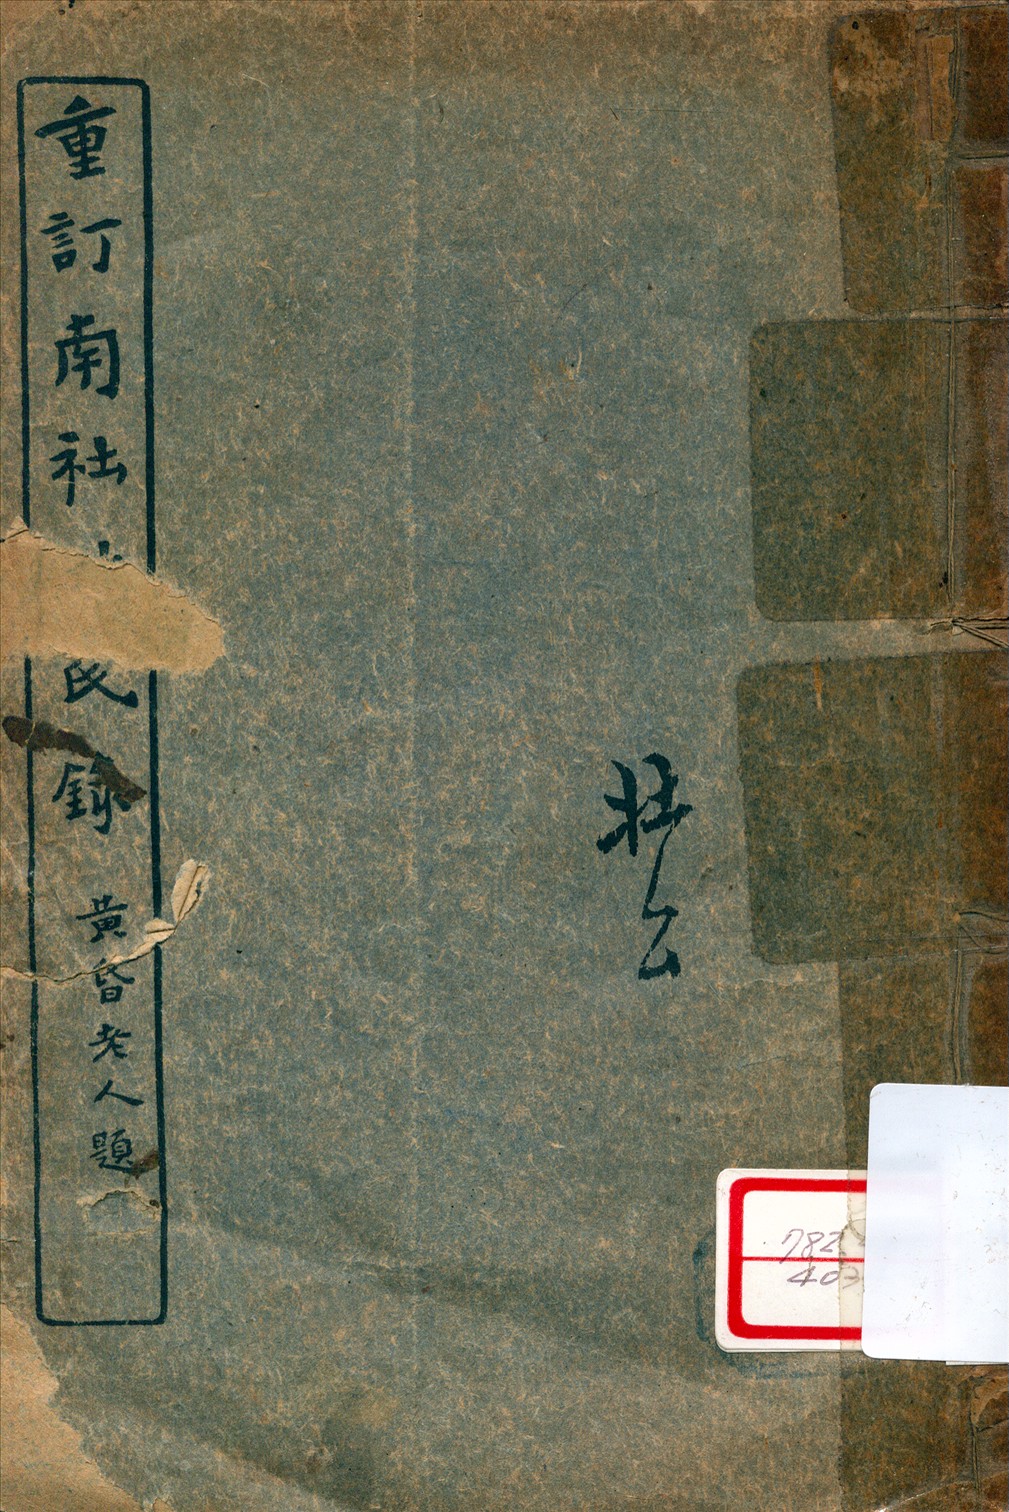 重訂南社氏錄
黃昏老人題
壯公
782
403